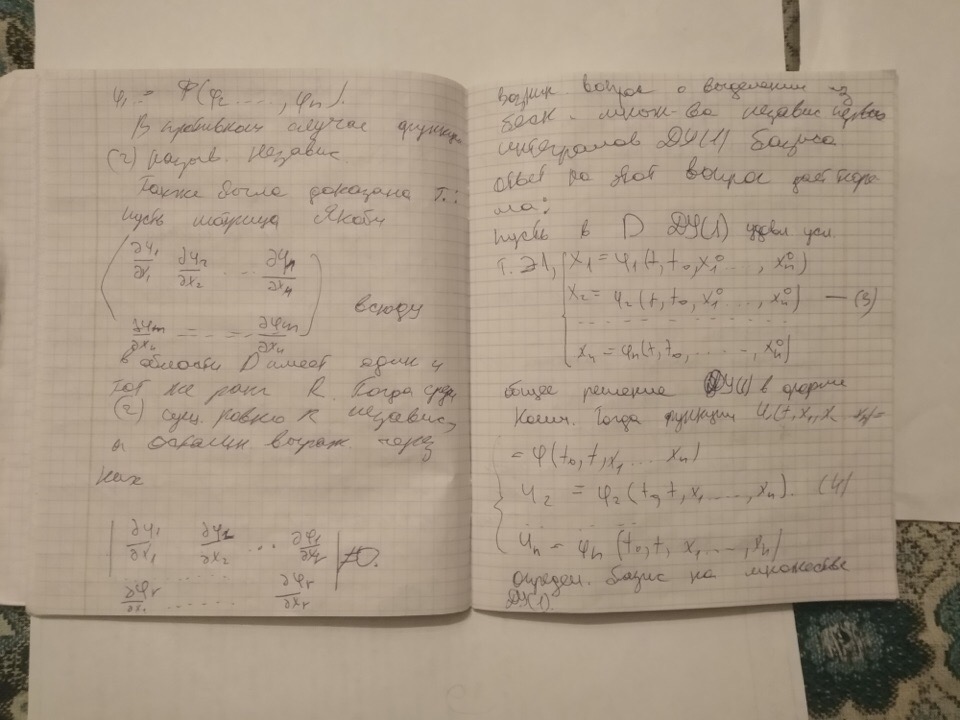 φ₁ = Φ(φ₂ ...., φₘ).
В противном случае функции
(2) назыв. независ.
Также была доказана т.:
Пусть матрица Якоби
∂φ₁/∂x₁ ∂φ₂/∂x₂ ... ∂φₙ/∂xₙ
∂φₘ/∂xₙ - - - - ∂φₘ/∂xₙ
всюду
в области D имеет один и
тот же ранг R. Тогда среди
(2) сущ. ровно R независ,
а осталн выраж. через
них
∂φ₁/∂x₁ ∂φ₁/∂x₂ ... ∂φ₁/∂xᵣ
≠0.
∂φᵣ/∂x₁ ...... ∂φᵣ/∂xᵣ
Возник. вопрос о выделении из
беск. множ-ва независ первых
интегралов ДУ(1) базиса
ответ на этот вопрос дает теоре
ма:
Пусть в D ДУ(1) удовл усл.
т. ∃1, x₁ = φ₁(t, t₀, x₁⁰ ..., xₙ⁰)
x₂ = φ₂(t, t₀, x₁⁰ ..., xₙ⁰) — (3)
xₙ = φₙ(t, t₀, ......, xₙ⁰)
общее решение ДУ(1) в форме
Коши. Тогда функции
= φ(t₀, t, x₁ ... xₙ)
φ₂(t₀, t, x₁, ..., xₙ). (4)
= φₙ(t₀, t, x₁ ..., xₙ)
определ. базис на множестве
ДУ(1).